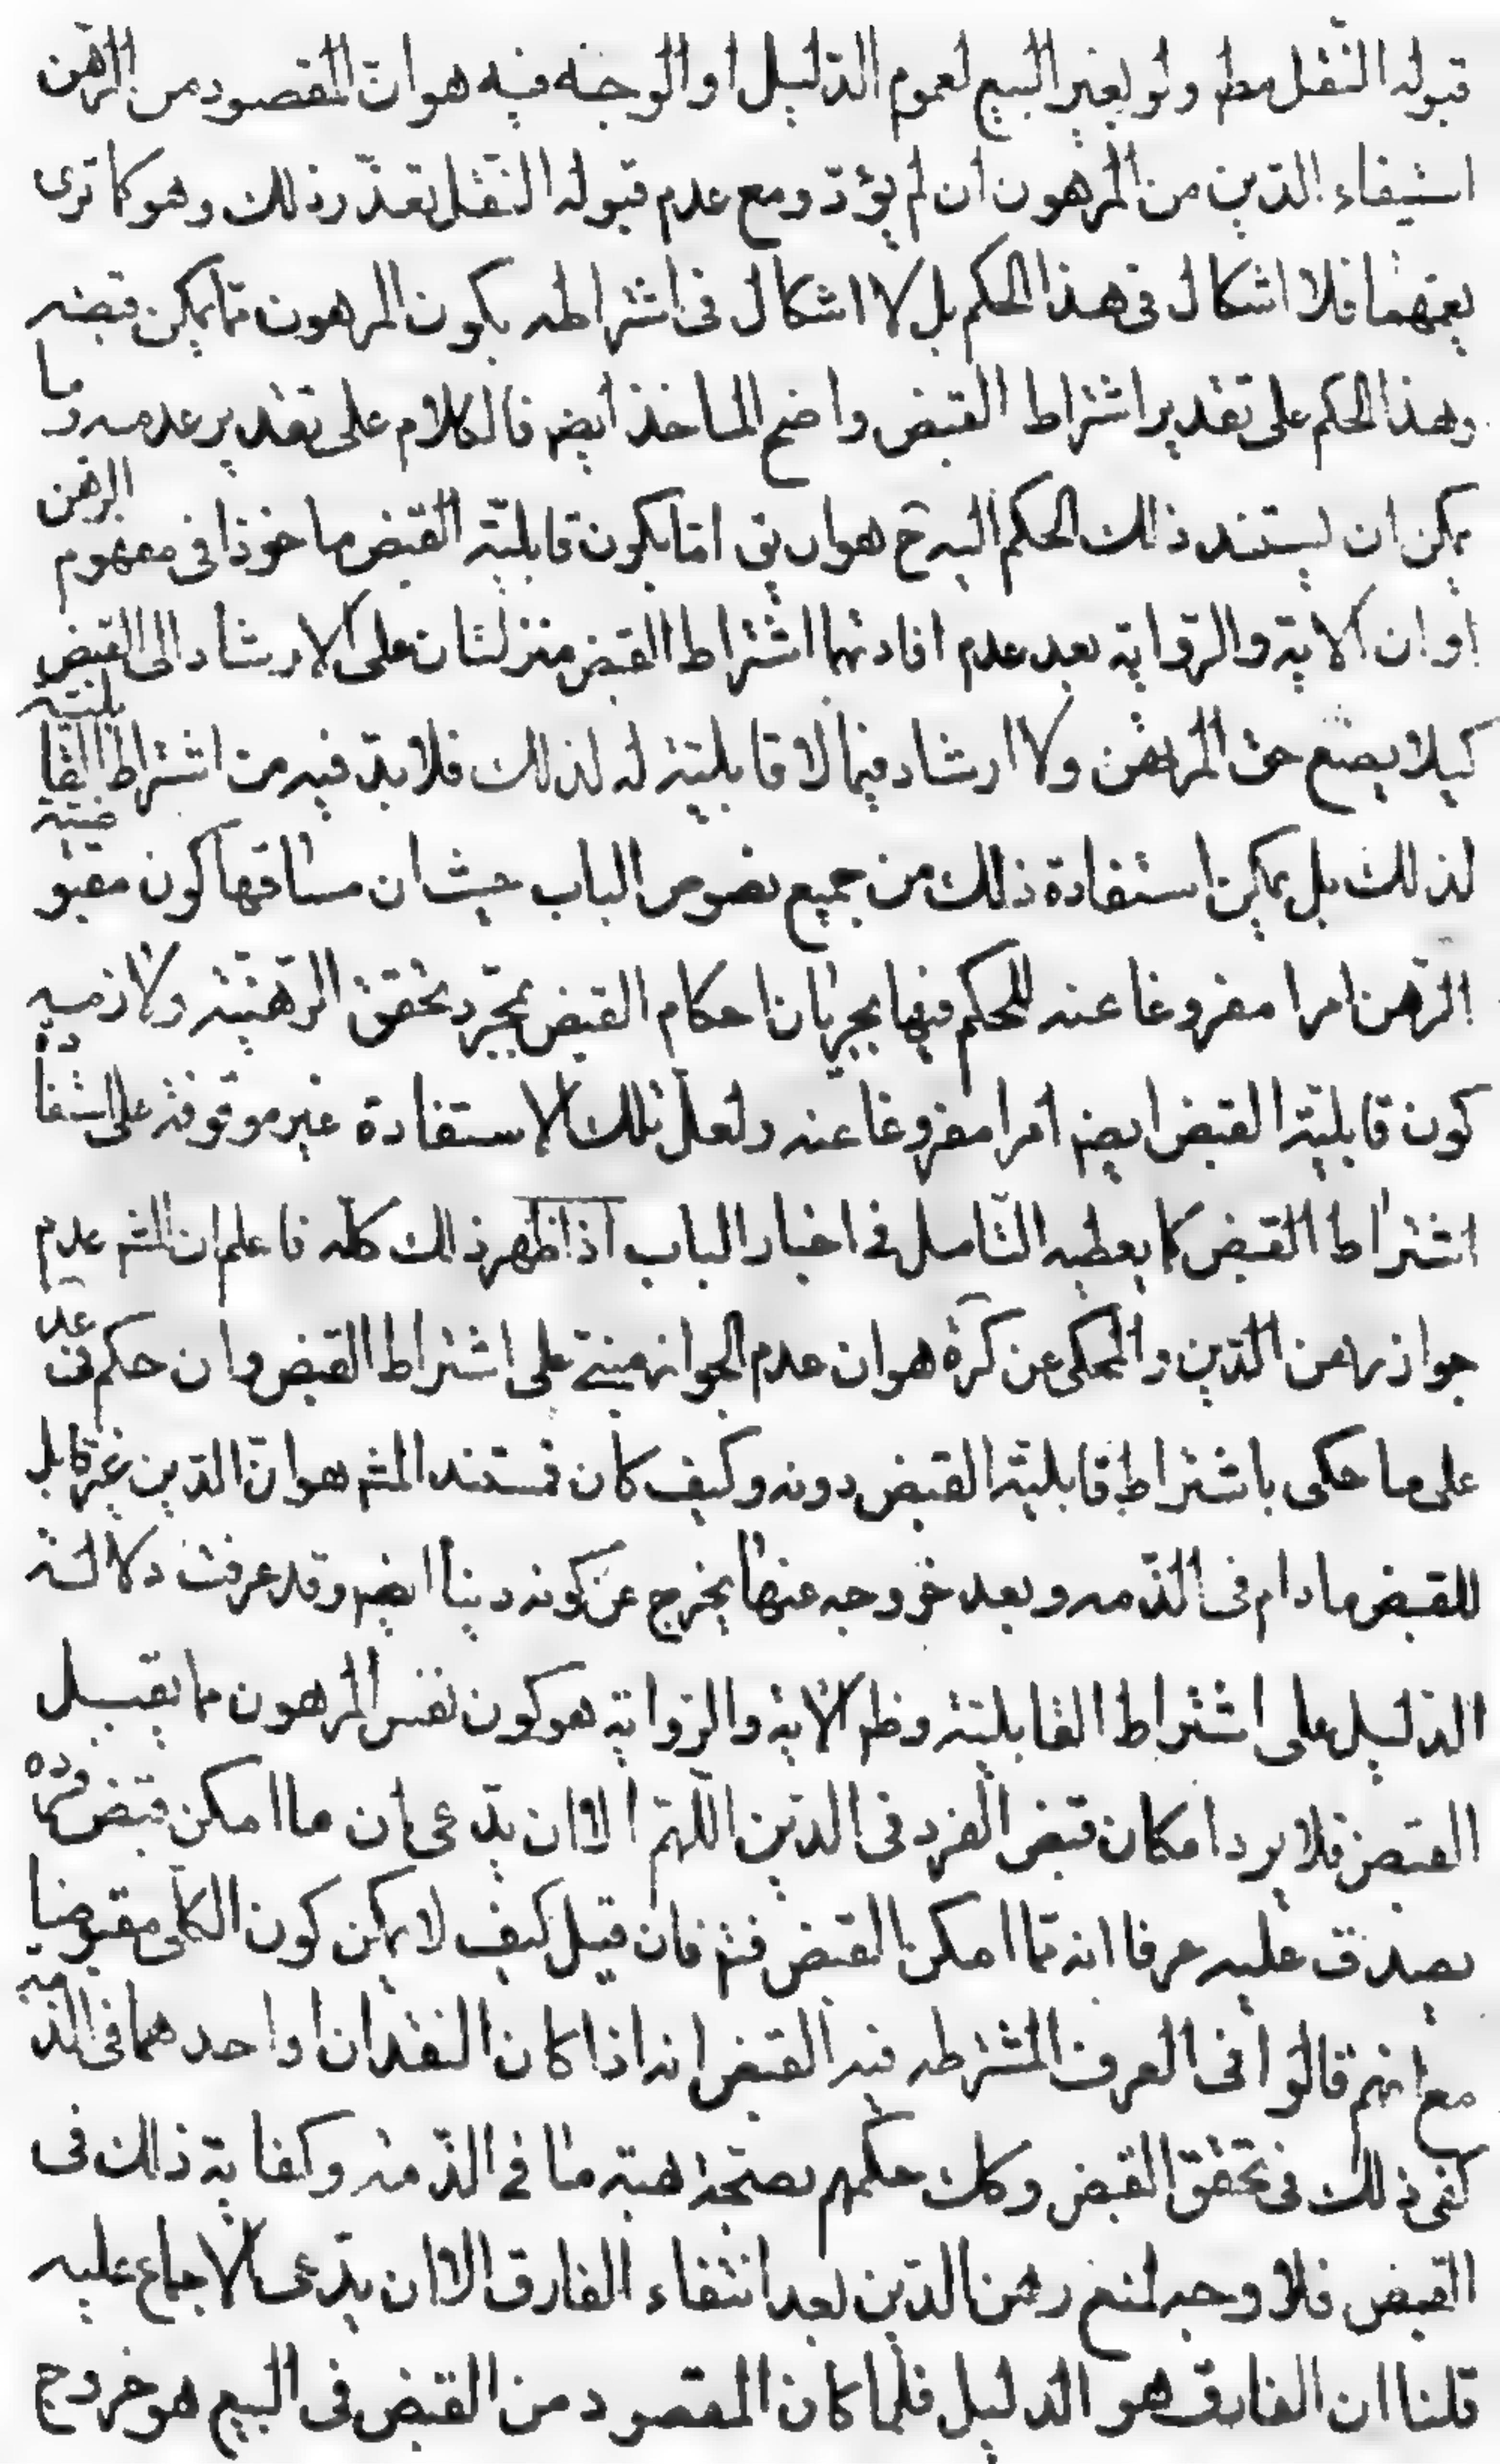 قبوله النقل مط ولو بغير البيع لعموم الدليل او الوجه فيه هو ان المقصود من الرهن
استيفاء الدين من المرهون ان لم يؤد ومع عدم قبوله النقل تعذر ذلك وهو كما ترى
يعمهما فلا اشكال فى هذا الحكم بل لا اشكال فى اشتراطه بكون المرهون مما يمكن قبضه
وهذا الحكم على تقدير اشتراط القبض واضح الماخذ ايضه فالكلام على تقدير عدمه وما
يمكن ان يستند ذلك الحكم اليه ح هو ان يق اما بكون قابلية القبض ماخوذا فى مفهوم الرهن
او ان الاية والرواية بعد عدم افادتهما اشتراط القبض منزلتان على الارشاد الى القبض
كيلا يضع حق المرتهن ولا ارشاد فيما لا قابلية له لذلك فلا بد فيه من اشتراط القابلية
لذلك بل يمكن استفادة ذلك من جميع نصوص الباب حيث ان مساقها كون مقبوضية
الرهن امرا مفروغا عنه للحكم فيها بجريان احكام القبض بمجرد تحقق الرهنية ولازمه
كون قابلية القبض ايضه امرا مفروغا عنه ولعل تلك الاستفادة غير موقوفة على استفادة
اشتراط القبض كما يعطيه التامل فى اخبار الباب اذا ظهر ذلك كله فاعلم ان المش عدم
جواز رهن الدين والمحكى عن كره هو ان عدم الجواز مبنى على اشتراط القبض وان حكم فى عد
على ما حكى باشتراط قابلية القبض دونه وكيف كان فمستند المش هو ان الدين غير قابل
للقبض ما دام فى الذمه وبعد خروجه عنها يخرج عن كونه دينا ايضه وقد عرفت دلالة
الدليل على اشتراط القابلية وظم الاية والرواية هو كون نفس المرهون مما يقبل
القبض فلا يرد امكان قبض الفرد فى الدين اللهم الا ان يدعى ان ما امكن قبض فرده
يصدق عليه عرفا انه مما امكن القبض فتم فان قيل كيف لا يمكن كون الكلى مقبوضا
مع انهم قالوا فى العرف المشترطه فيه القبض انه اذا كان النقدان او احدهما فى الذمة
كفى ذلك فى تحقق القبض وكك حكمهم بصحة هبة ما فى الذمة وكفاية ذلك فى
القبض فلا وجه لمنع رهن الدين بعد انتفاء الفارق الا ان يدعى الاجماع عليه
قلنا ان الفارق هو الدليل فلما كان المقصود من القبض فى البيع هو خروج